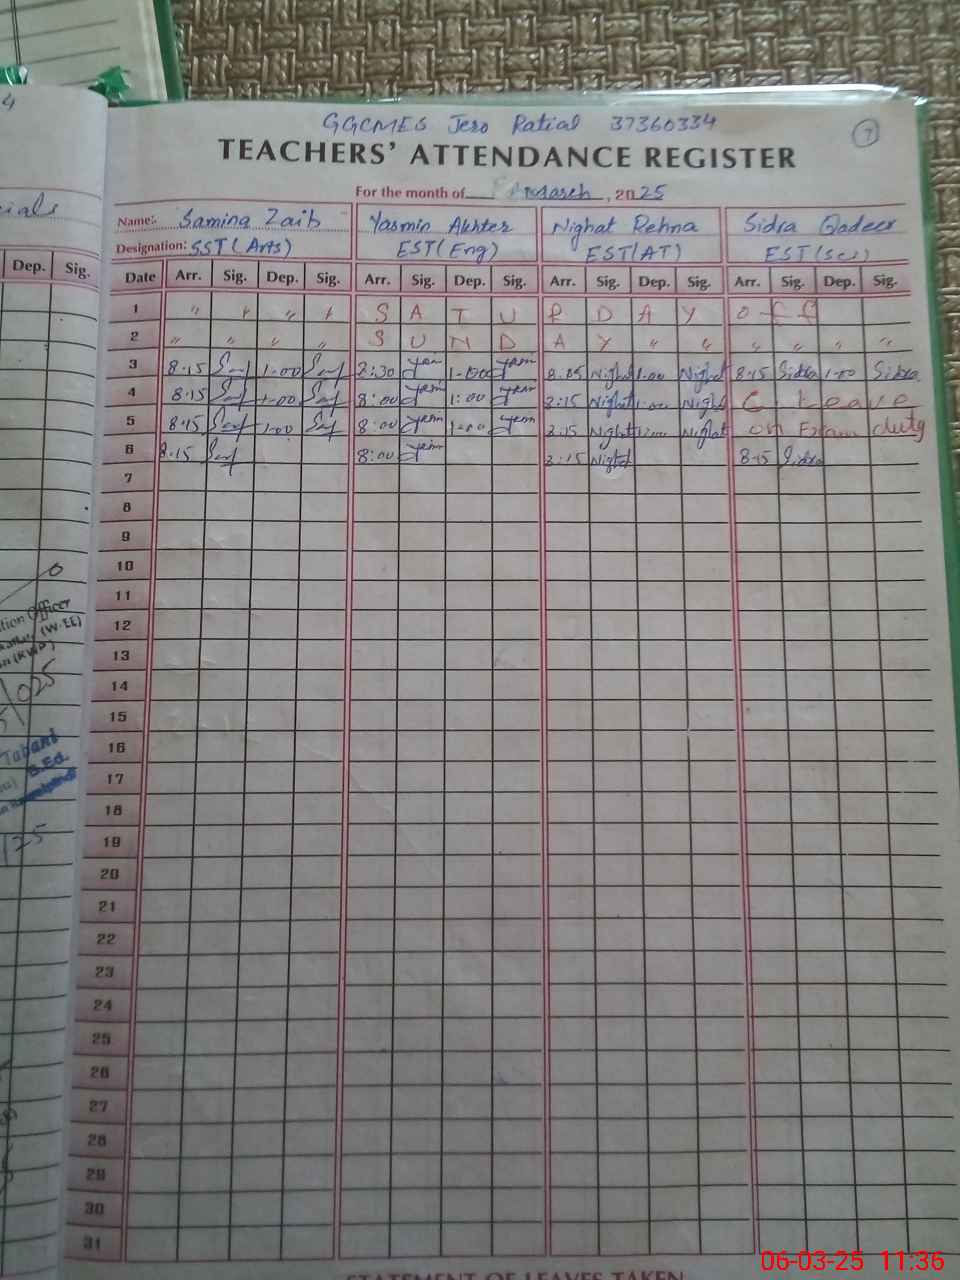 4
GGCMES Jero Ratial 37360334
7
TEACHERS' ATTENDANCE REGISTER
For the month of March, 2025
Name: Samina Zaib Yasmin Akhter Nighat Rehna Sidra Qadeer
Designation: SST (Arts) EST (Eng) EST (AT) EST (Sci)
Dep. Sig. Date Arr. Sig. Dep. Sig. Arr. Sig. Dep. Sig. Arr. Sig. Dep. Sig. Arr. Sig. Dep. Sig.
1 " " " " S A T U R D A Y o f f
2 " " " " S U N D A Y " " " " " "
3 8-15 1-00 1-00 Nighat 1-00 Nighat 8-15 Sidra 1-00 Sidra
4 8-15 1-00 8:00 1:00 Nighat Nighat C Leave
5 8-15 1-00 8:00 1-00 Nighat Nighat on Exam duty
6 8-15 8:00 Nighat 8-15 Sidra
7
8
9
10
11
12
13
14
15
16
17
18
19
20
21
22
23
24
25
26
27
28
29
30
31
Officer
(W-EE)
Tabani
B.Ed.
STATEMENT OF LEAVES TAKEN
06-03-25 11:36